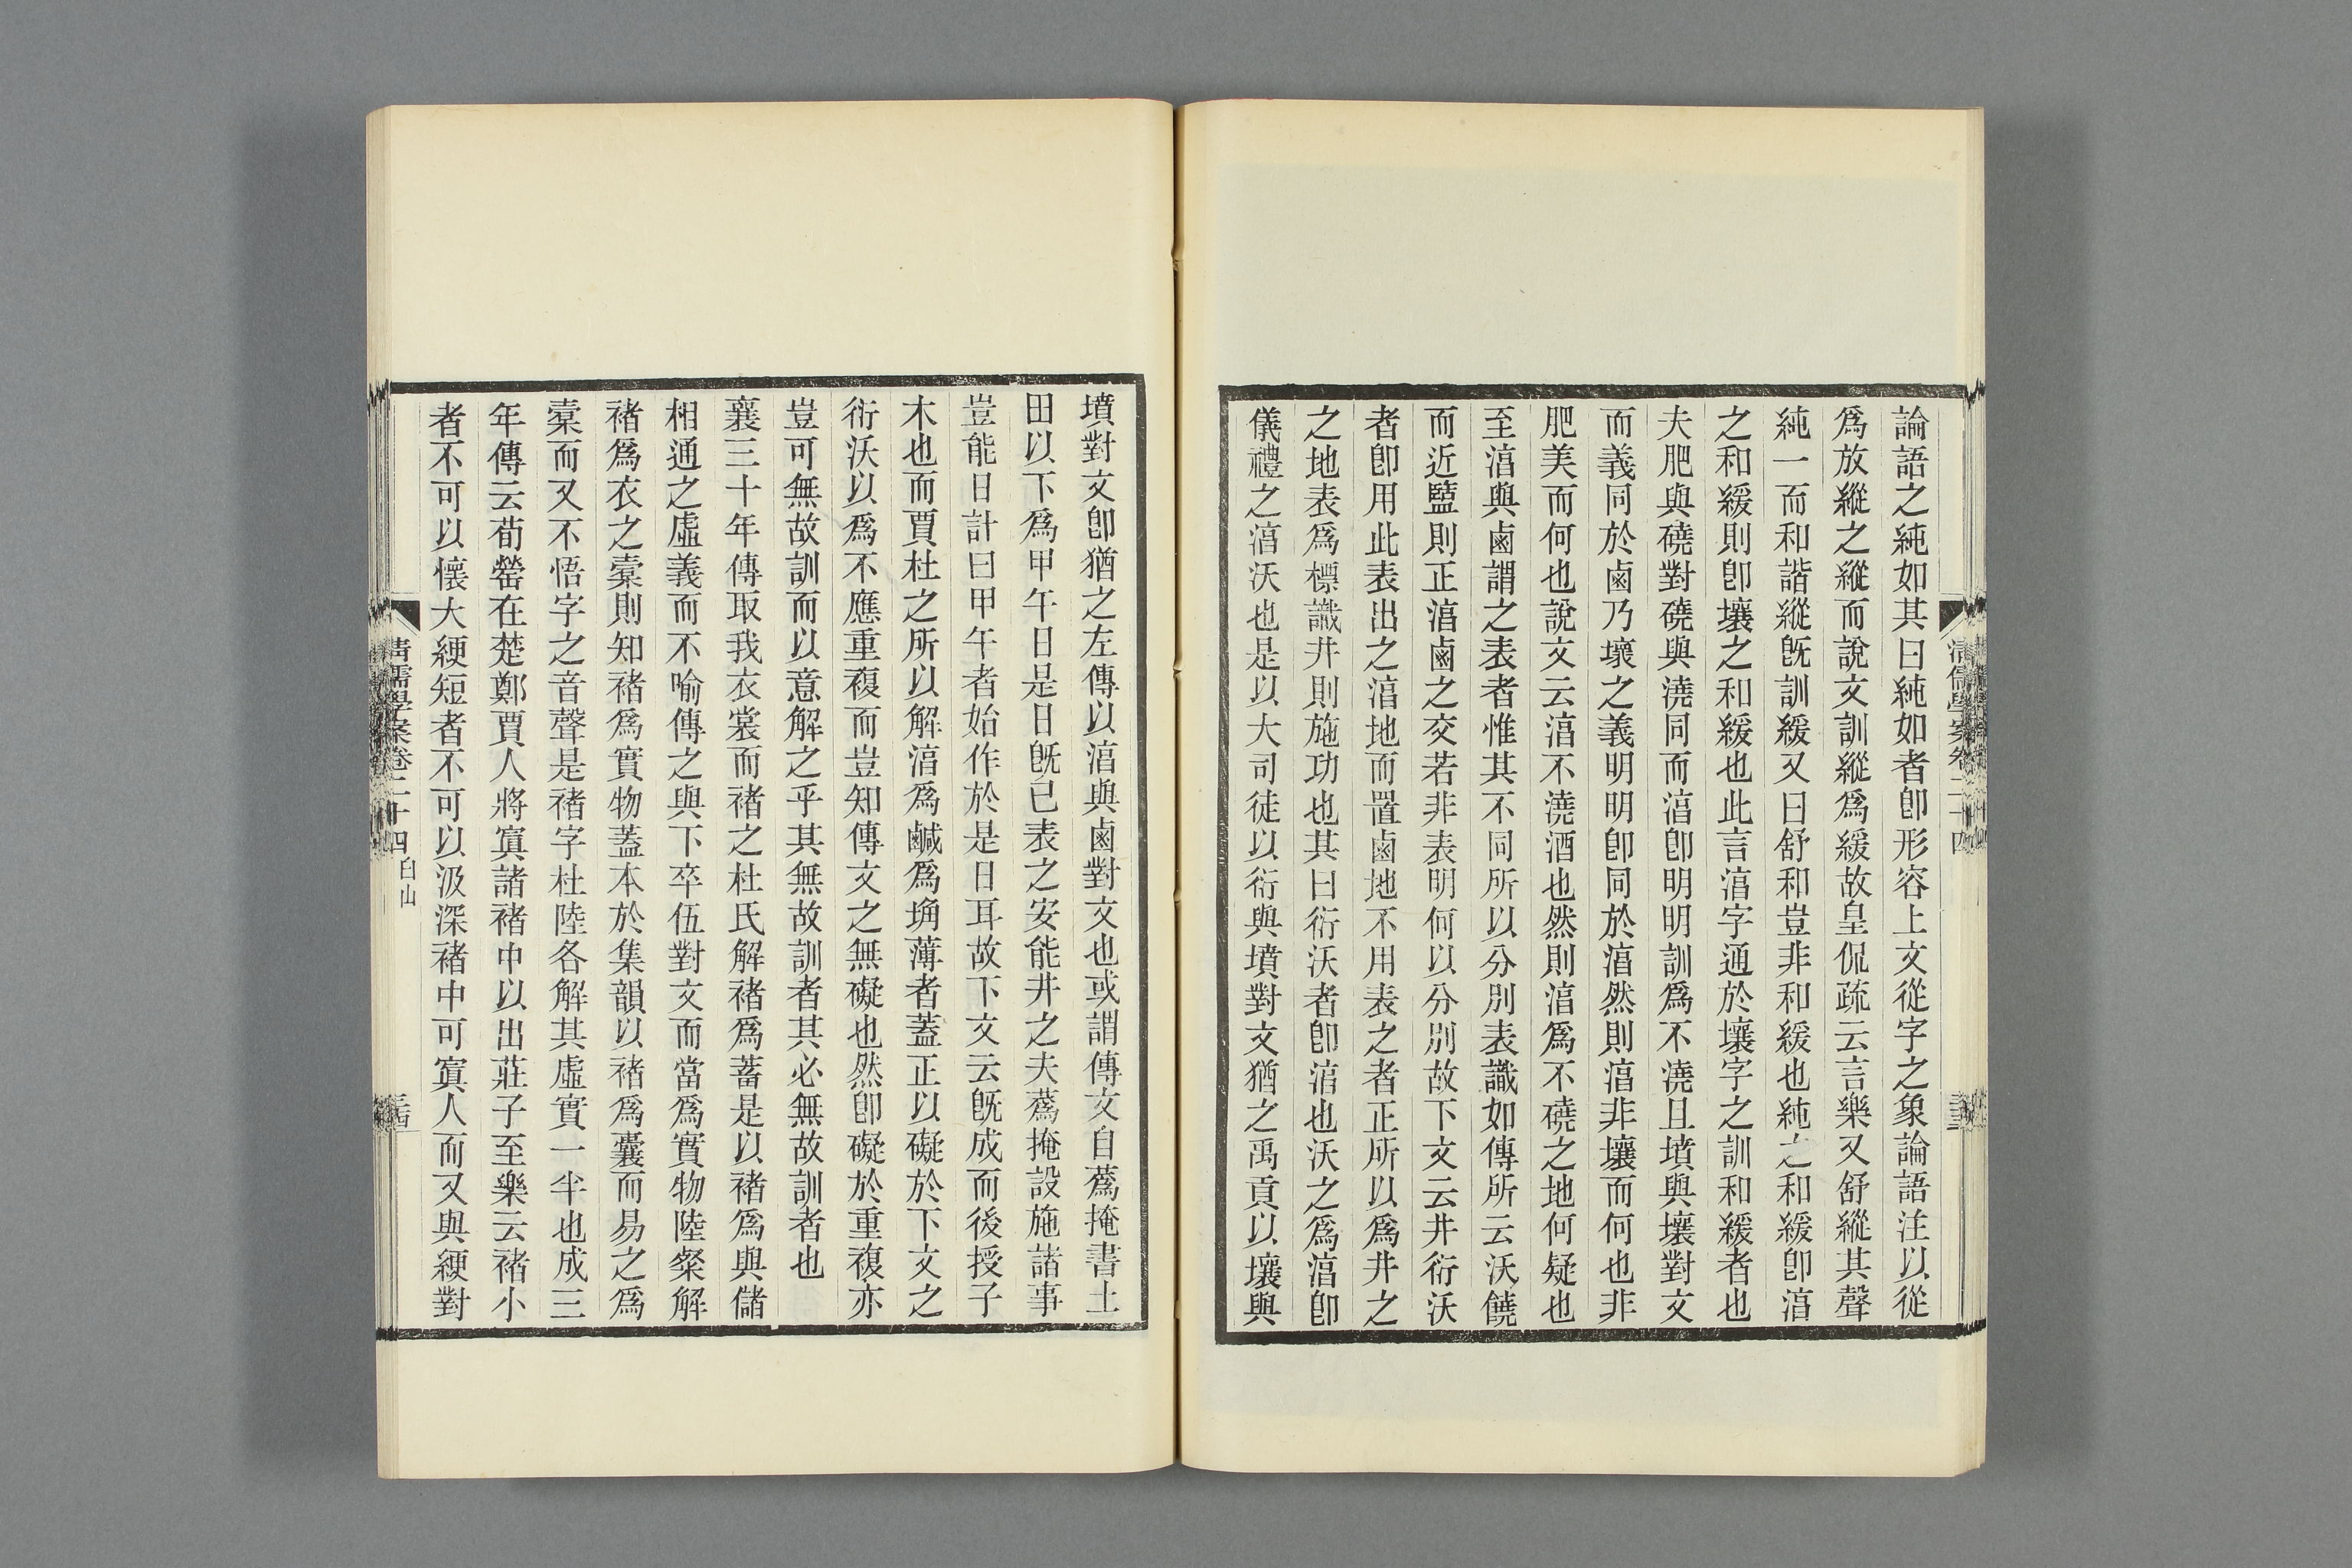 論語之純如其曰純如者卽形容上文從字之象論語注以從
爲放縱之縱而說文訓縱爲緩故皇侃疏云言樂又舒縱其聲
純一而和諧縱旣訓緩又曰舒和豈非和緩也純之和緩卽淳
之和緩則卽壤之和緩也此言淳字通於壤字之訓和緩者也
夫肥與磽對磽與澆同而淳卽明明訓爲不澆且墳與壤對文
而義同於鹵乃壤之義明明卽同於淳然則淳非壤而何也非
肥美而何也說文云淳不澆酒也然則淳爲不磽之地何疑也
至淳與鹵謂之表者惟其不同所以分別表識如傳所云沃饒
而近鹽則正淳鹵之交若非表明何以分別故下文云井衍沃
者卽用此表出之淳地而置鹵地不用表之者正所以爲井之
之地表爲標識井則施功也其曰衍沃者卽淳也沃之爲淳卽
儀禮之淳沃也是以大司徒以衍與墳對文猶之禹貢以壤與
清儒學案卷二十四
墳對文卽猶之左傳以淳與鹵對文也或謂傳文自蔿掩書土
田以下爲甲午日是日旣已表之安能井之夫蔿掩設施諸事
豈能日計曰甲午者始作於是日耳故下文云旣成而後授子
木也而賈杜之所以解淳爲鹹爲埆薄者蓋正以礙於下文之
衍沃以爲不應重複而豈知傳文之無礙也然卽礙於重複亦
豈可無故訓而以意解之乎其無故訓者其必無故訓者也
襄三十年傳取我衣裳而褚之杜氏解褚爲蓄是以褚爲與儲
相通之虛義而不喻傳之與下卒伍對文而當爲實物陸粲解
褚爲衣之橐則知褚爲實物蓋本於集韻以褚爲囊而易之爲
橐而又不悟字之音聲是褚字杜陸各解其虛實一半也成三
年傳云荀罃在楚鄭賈人將寘諸褚中以出莊子至樂云褚小
者不可以懷大綆短者不可以汲深褚中可寘人而又與綆對
清儒學案卷二十四 白山